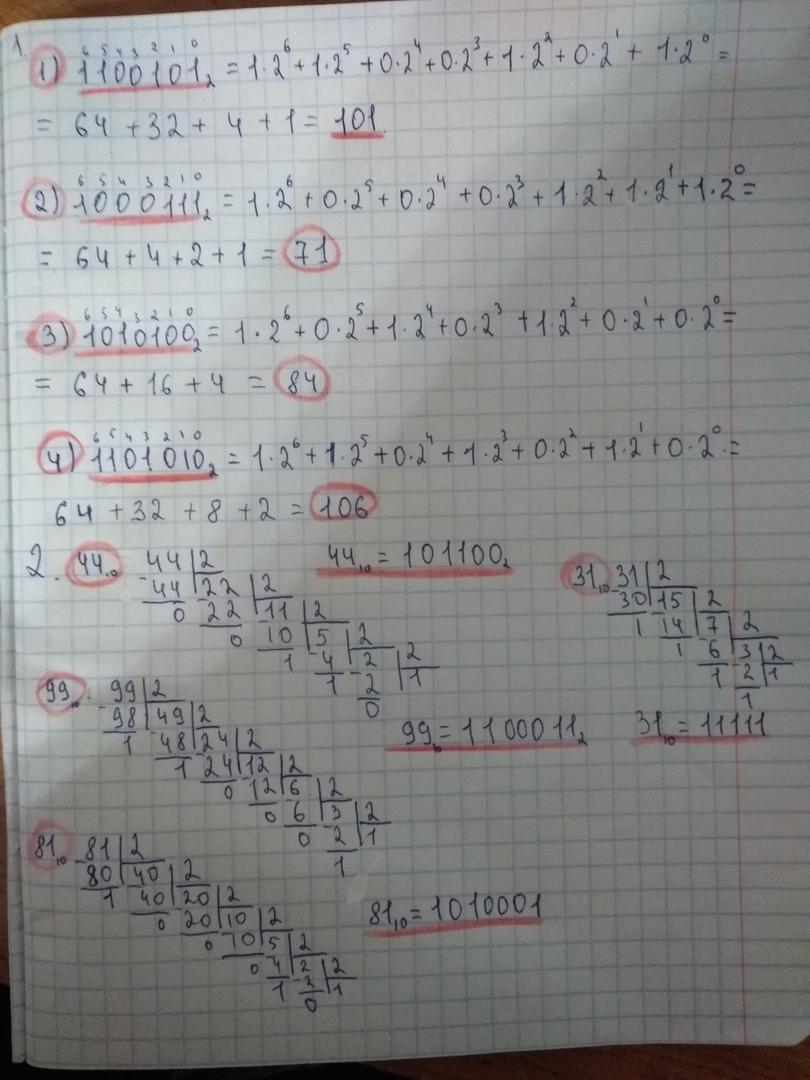 1.
6 5 4 3 2 1 0
1) 1100101₂ = 1·2⁶ + 1·2⁵ + 0·2⁴ + 0·2³ + 1·2² + 0·2¹ + 1·2⁰ =
= 64 + 32 + 4 + 1 = 101
6 5 4 3 2 1 0
2) 1000111₂ = 1·2⁶ + 0·2⁵ + 0·2⁴ + 0·2³ + 1·2² + 1·2¹ + 1·2⁰ =
= 64 + 4 + 2 + 1 = 71
6 5 4 3 2 1 0
3) 1010100₂ = 1·2⁶ + 0·2⁵ + 1·2⁴ + 0·2³ + 1·2² + 0·2¹ + 0·2⁰ =
= 64 + 16 + 4 = 84
6 5 4 3 2 1 0
4) 1101010₂ = 1·2⁶ + 1·2⁵ + 0·2⁴ + 1·2³ + 0·2² + 1·2¹ + 0·2⁰ =
64 + 32 + 8 + 2 = 106
2. 44₁₀ 44 2
-44 22 2
0 22 11 2
0 10 5 2
1 4 2 2
1 2 1
0
44₁₀ = 101100₂
31₁₀ 31 2
30 15 2
1 14 7 2
1 6 3 2
1 2 1
1
99₁₀. -99 2
98 49 2
1 48 24 2
1 24 12 2
0 12 6 2
0 6 3 2
0 2 1
1
99₁₀ = 1100011₂
31₁₀ = 11111
81₁₀ -81 2
80 40 2
1 40 20 2
0 20 10 2
0 10 5 2
0 4 2 2
1 2 1
0
81₁₀ = 1010001